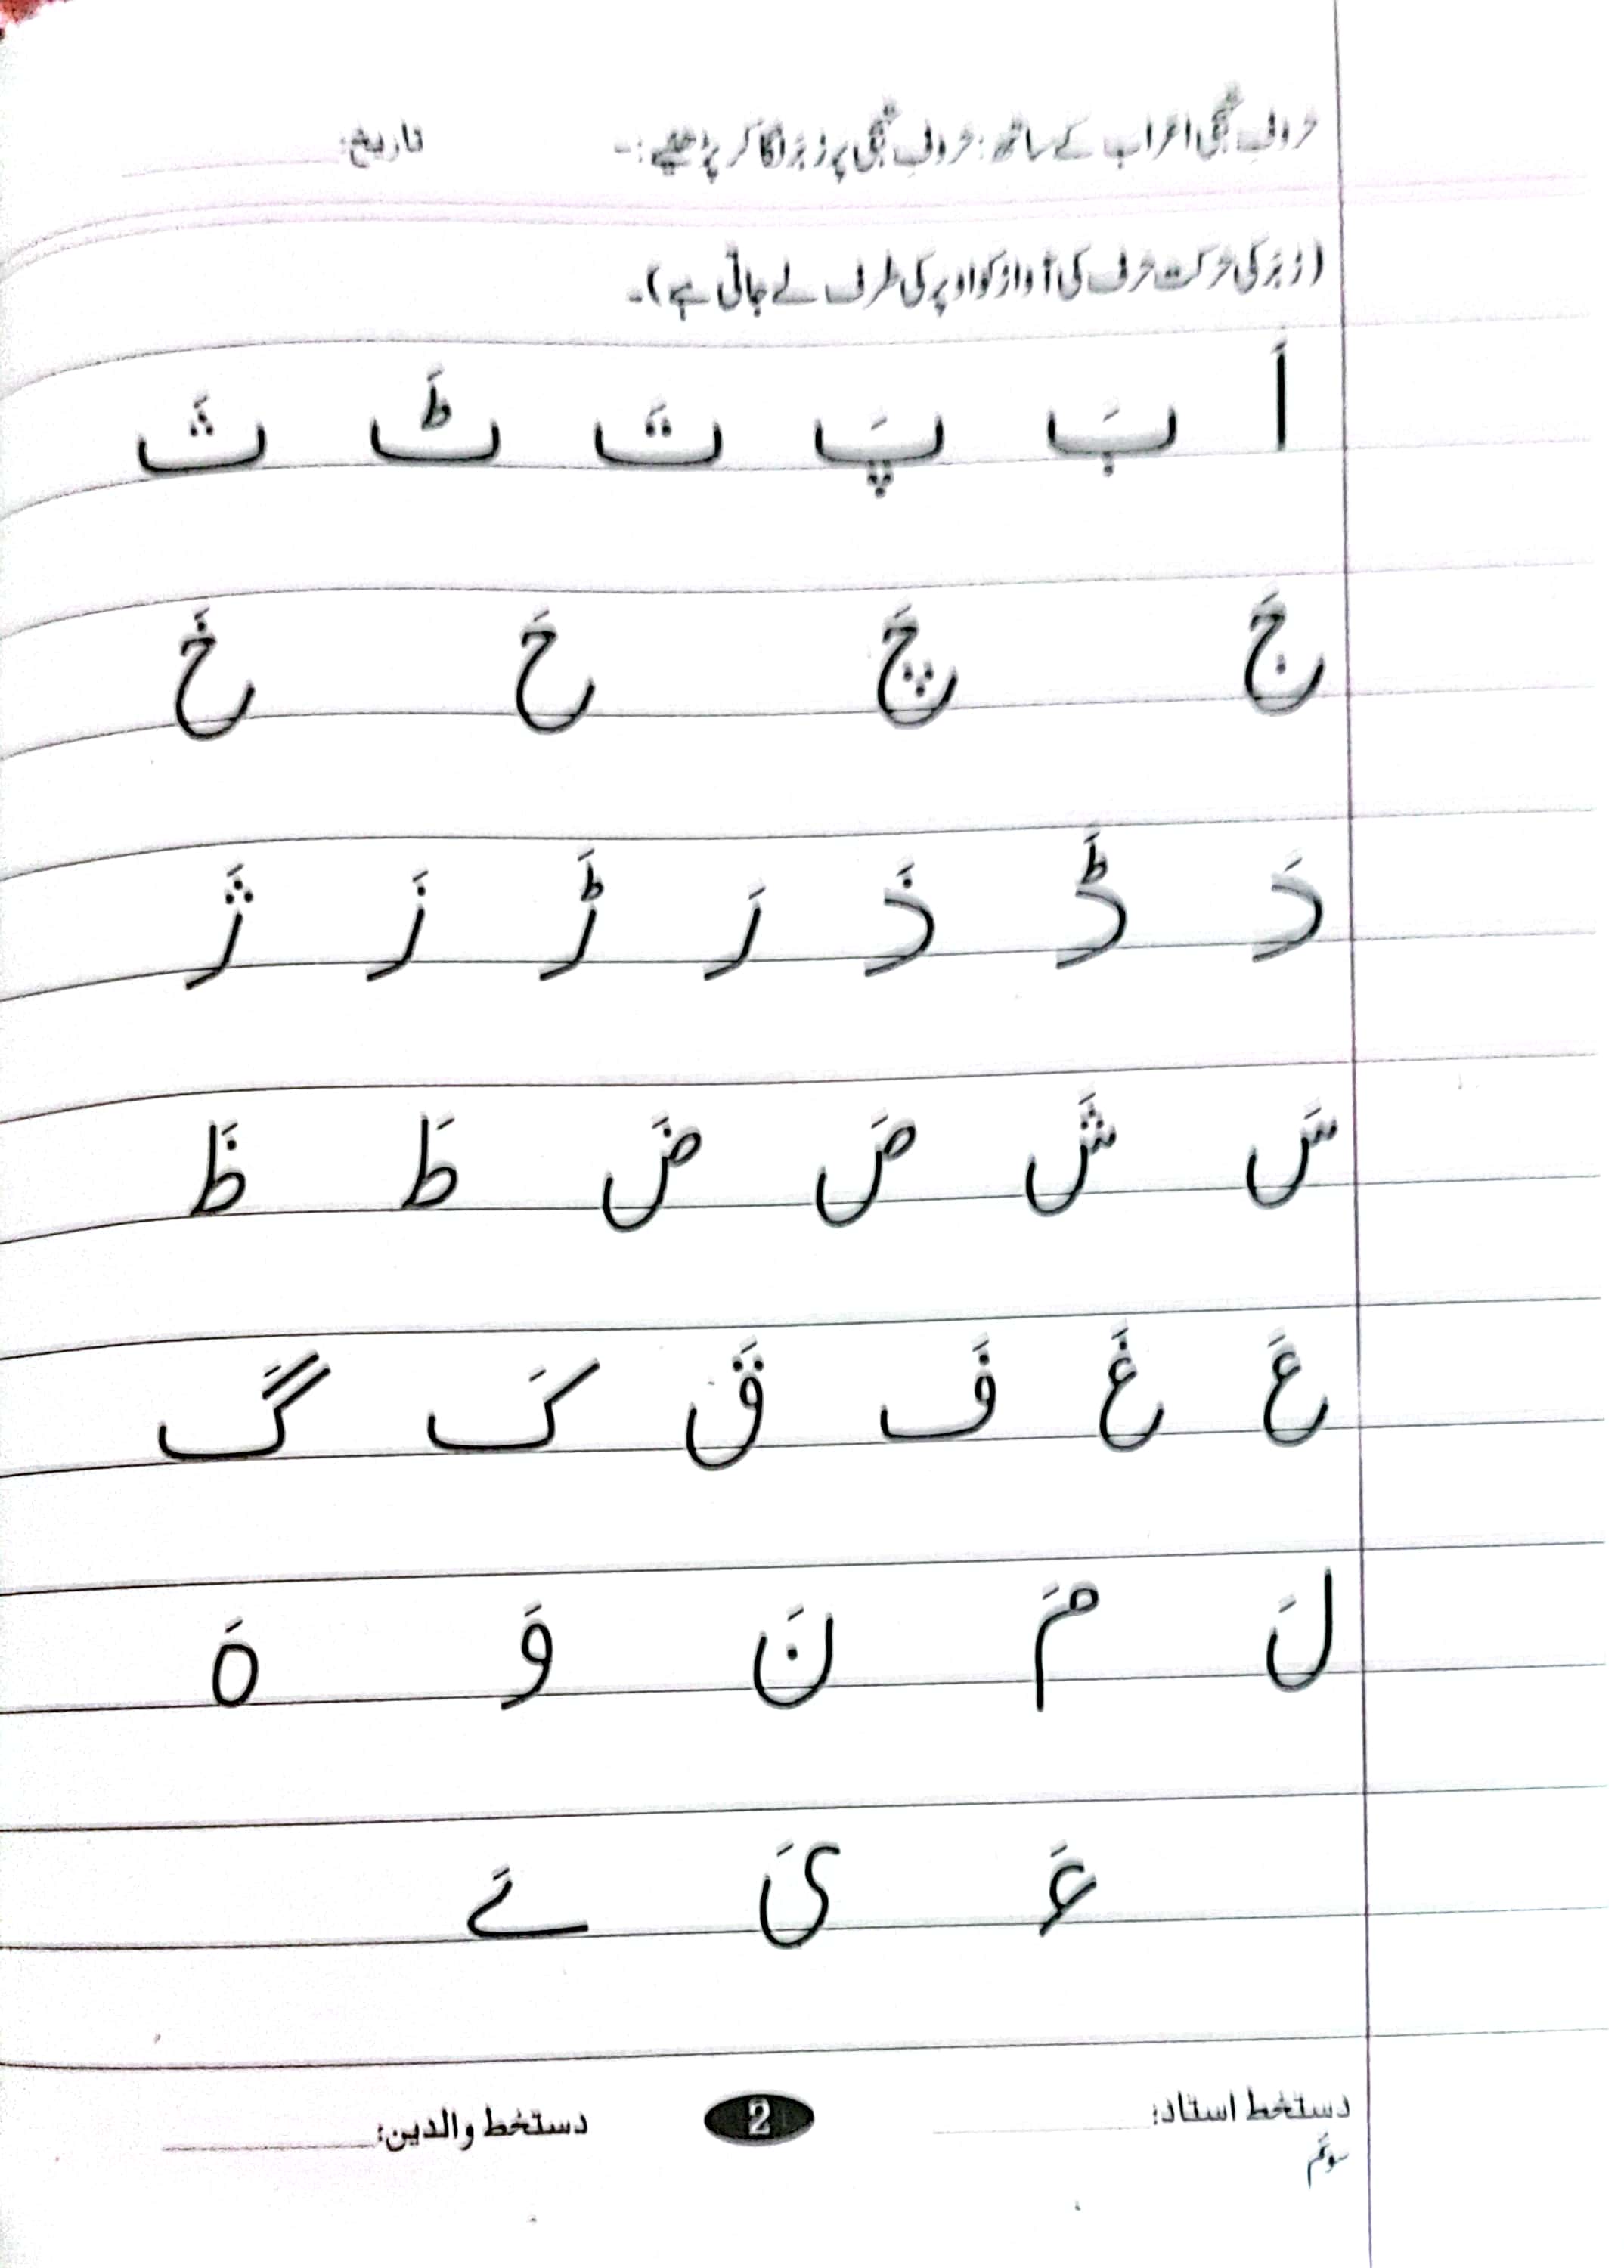 حروفِ تہجی اعراب کے ساتھ: حروفِ تہجی پر زَبَر لگا کر پڑھیے:- تاریخ:
(زَبَر کی حرکت حرف کی آواز کو اوپر کی طرف لے جاتی ہے)۔
اَ بَ پَ تَ ٹَ ثَ
جَ چَ حَ خَ
دَ ڈَ ذَ رَ ڑَ زَ ژَ
سَ شَ صَ ضَ طَ ظَ
عَ غَ فَ قَ کَ گَ
لَ مَ نَ وَ ہَ
ءَ یَ ےَ
دستخط استاد: 2 دستخط والدین:
سوئم